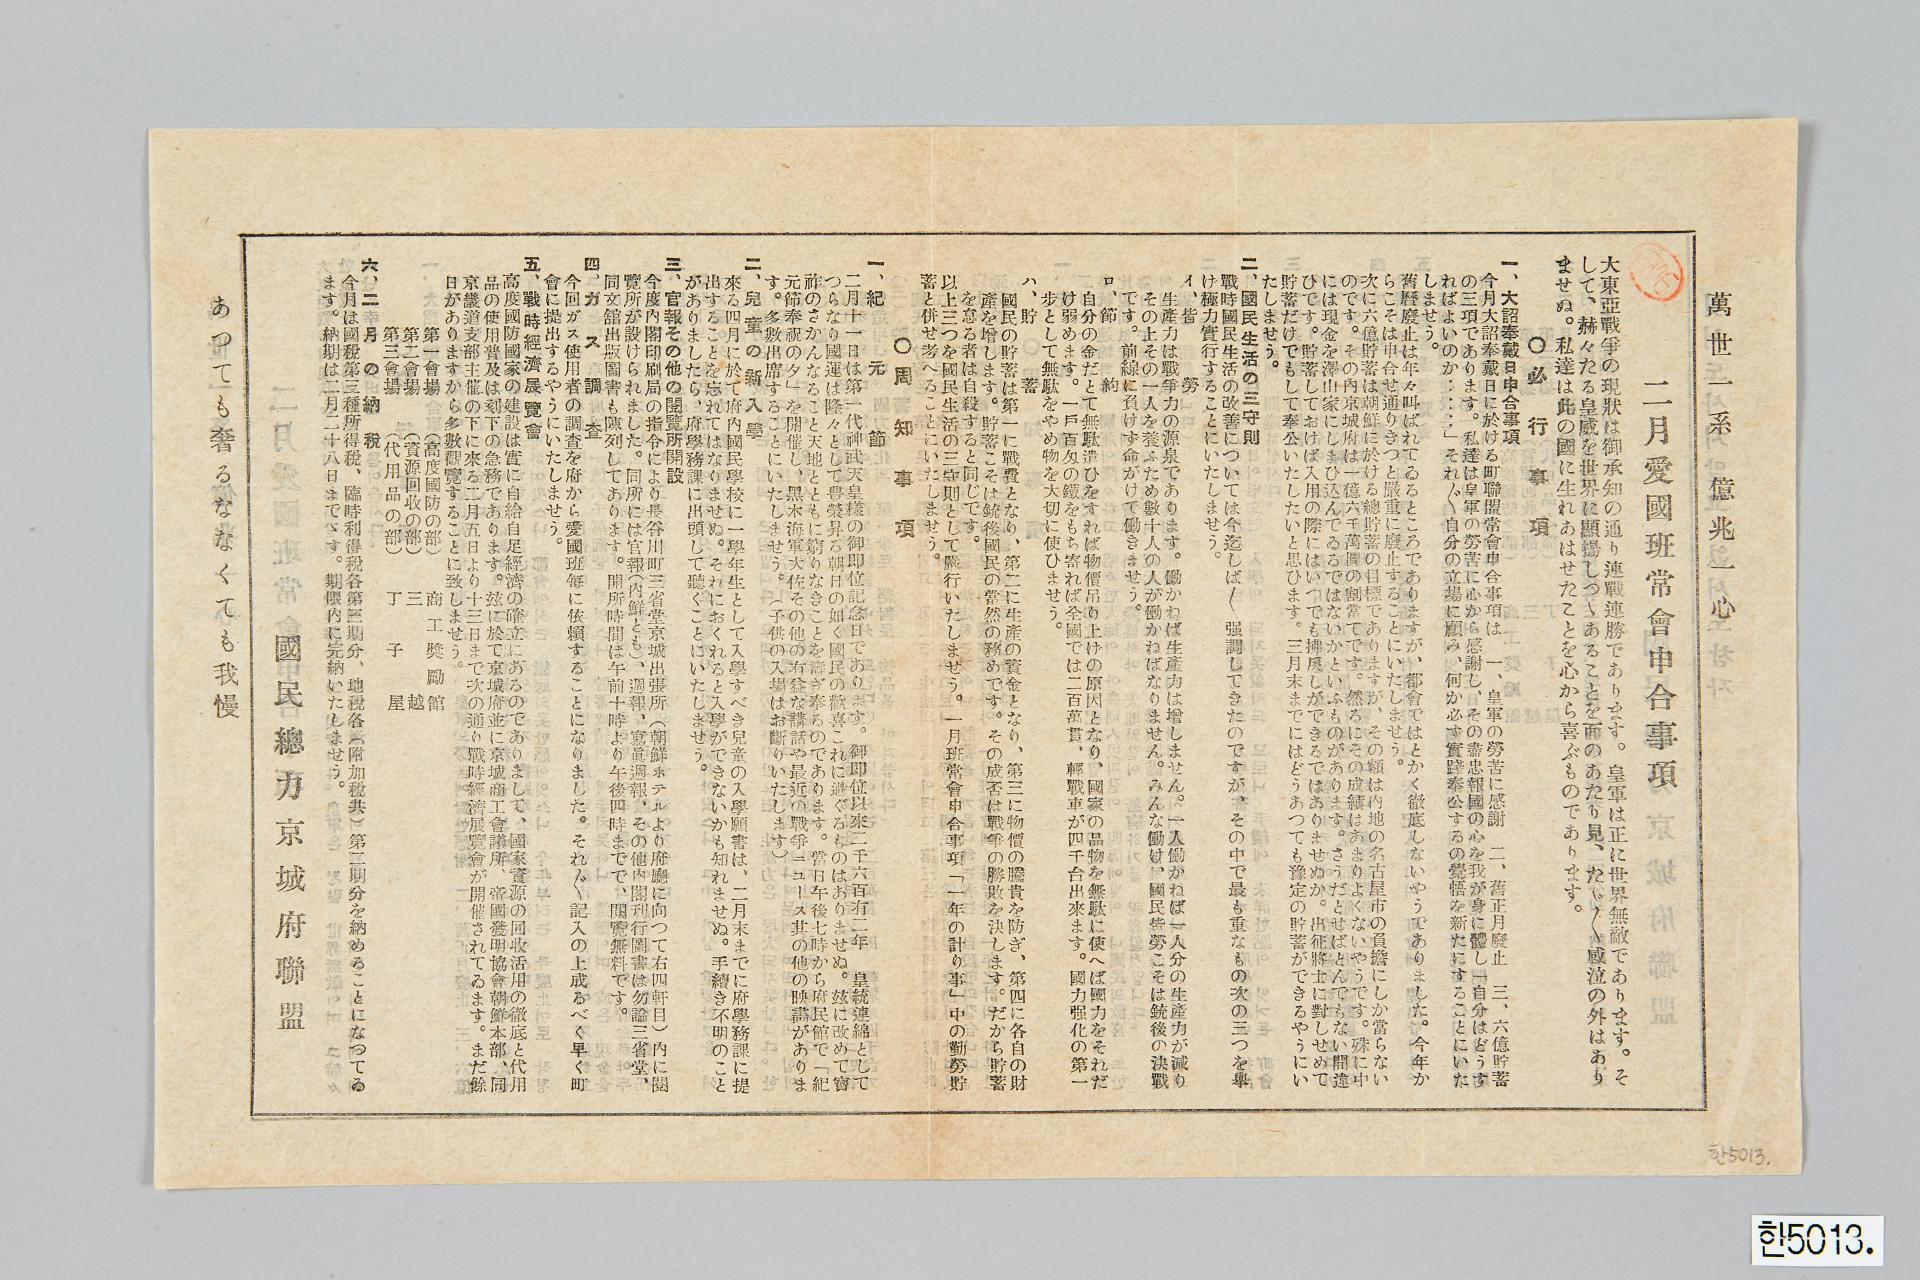 萬世一系 億兆一心
二月愛國班常會申合事項
大東亞戰爭の現狀は御承知の通り連戰連勝であります。皇軍は正に世界無敵であります。そ
して、赫々たる皇威を世界に顯揚しつゝあることを面のあたり見、たゞ〱感泣の外はあり
ませぬ。私達は此の國に生れあはせたことを心から喜ぶものであります。
〇必行事項
一、大詔奉戴日申合事項
今月大詔奉戴日に於ける町聯盟常會申合事項は 一、皇軍の勞苦に感謝 二、舊正月廢止 三、六億貯蓄
の三項であります。私達は皇軍の勞苦に心から感謝し、その盡忠報國の心を我が身に體し「自分はどうす
ればよいのか‥‥」それ〲自分の立場に顧み、何か必ず實踐奉公するの覺悟を新たにすることにいた
しませう。
舊曆廢止は年々叫ばれてゐるところでありますが、都會ではとかく徹底しないやうでありました。今年か
らこそは申合せ通りきつと嚴重に廢止することにいたしませう。
次に六億貯蓄は朝鮮に於ける總貯蓄の目標でありますが、その額は內地の名古屋市の負擔にしか當らない
のです。その內京城府は一億六千萬圓の割當てです。然るにその成績はあまりよくないやうです。殊に中
には現金を澤山家にしまひ込んでゐるではないかといふものがあります。さうだとせばとんでもない間違
ひです。貯蓄しておけば入用の際にはいつでも拂戾しができるではありませぬか。出征將士に對しせめて
貯蓄だけでもして奉公いたしたいと思ひます。三月末までにはどうあつても豫定の貯蓄ができるやうにい
たしませう。
二、國民生活の三守則
戰時國民生活の改善については今迄しば〱强調してきたのですが、その中で最も重なもの次の三つを擧
け極力實行することにいたしませう。
イ、皆勞
生產力は戰爭力の源泉であります。働かねば生產力は增しません。一人働かねば一人分の生產力が減り
その上その一人を養ふため數十人の人が働かねばなりません。みんな働け、國民皆勞こそは銃後の決戰
です。前線に負けず命がけで働きませう。
ロ、節約
自分の金だとて無駄遣ひをすれば物價吊り上けの原因となり、國家の品物を無駄に使へば國力をそれだ
け弱めます。一戶百匁の鐵をもち寄れば全國では二百萬貫、輕戰車が四千台出來ます。國力强化の第一
步として無駄をやめ物を大切に使ひませう。
ハ、貯蓄
國民の貯蓄は第一に戰費となり、第二に生產の資金となり、第三に物價の騰貴を防ぎ、第四に各自の財
產を增します。貯蓄こそは銃後國民の當然の務めです。その成否は戰爭の勝敗を決します。だから貯蓄
を怠る者は自殺すると同じです。
以上三つを國民生活の三守則として勵行いたしませう。一月班常會申合事項「一年の計り事」中の勤勞貯
蓄と併せ考へることにいたしませう。
〇周知事項
一、紀元節
二月十一日は第一代神武天皇樣の御卽位記念日であります。御卽位以來二千六百有二年 皇統連綿として
つらなり國運は隆々として豊榮昇る朝日の如く國民の歡喜これに過ぐるものはありませぬ。玆に改めて寳
祚のさかんなること天地とともに窮りなきことを壽ぎ奉るのであります。當日午後七時から府民館で「紀
元節奉祝の夕」を開催し、黑木海軍大佐その他の有益な講話や最近の戰爭ニユース其の他の映畵がありま
す。多數出席することにいたしませう。(子供の入場はお斷りいたします)
二、兒童の新入學
來る四月に於て府內國民學校に一學年生として入學すべき兒童の入學願書は、二月末までに府學務課に提
出することを忘れてはなりませぬ。それにおくれると入學ができないかも知れませぬ。手續き不明のこと
がありましたら、府學務課に出頭して聽くことにいたしませう。
三、官報その他の閱覽所開設
今度內閣印刷局の指令により長谷川町三省堂京城出張所(朝鮮ホテルより府廳に向つて右四軒目)內に閱
覽所が設けられました。同所には官報(內鮮とも)、週報、寫眞週報、その他內閣刊行圖書は勿論三省堂、
同文舘出版圖書も陳列してあります。開所時間は午前十時より午後四時までで、閱覽無料です。
四、ガス調査
今回ガス使用者の調査を府から愛國班每に依賴することになりました。それ〲記入の上成るべく早く町
會に提出するやうにいたしませう。
五、戰時經濟展覽會
高度國防國家の建設は實に自給自足經濟の確立にあるのでありまして、國家資源の回收活用の徹底と代用
品の使用普及は刻下の急務であります。玆に於て京城府並に京城商工會議所、帝國發明協會朝鮮本部、同
京畿道支部主催の下に來る二月五日より十三日まで次の通り戰時經濟展覽會が開催されてゐます。まだ餘
日がありますから多數觀覽することに致しませう。
第一會場 (高度國防の部) 商工奬勵館
第二會場 (資源回收の部) 三越
第三會場 (代用品の部) 丁子屋
六、二月の納稅
今月は國稅第三種所得稅、臨時利得稅各第三期分、地稅各(附加稅共)第二期分を納めることになつてゐ
ます。納期は二月二十八日までゞす。期限內に完納いたしませう。
國民總力京城府聯盟
あつても奢るな なくても我慢
한5013.
한5013.